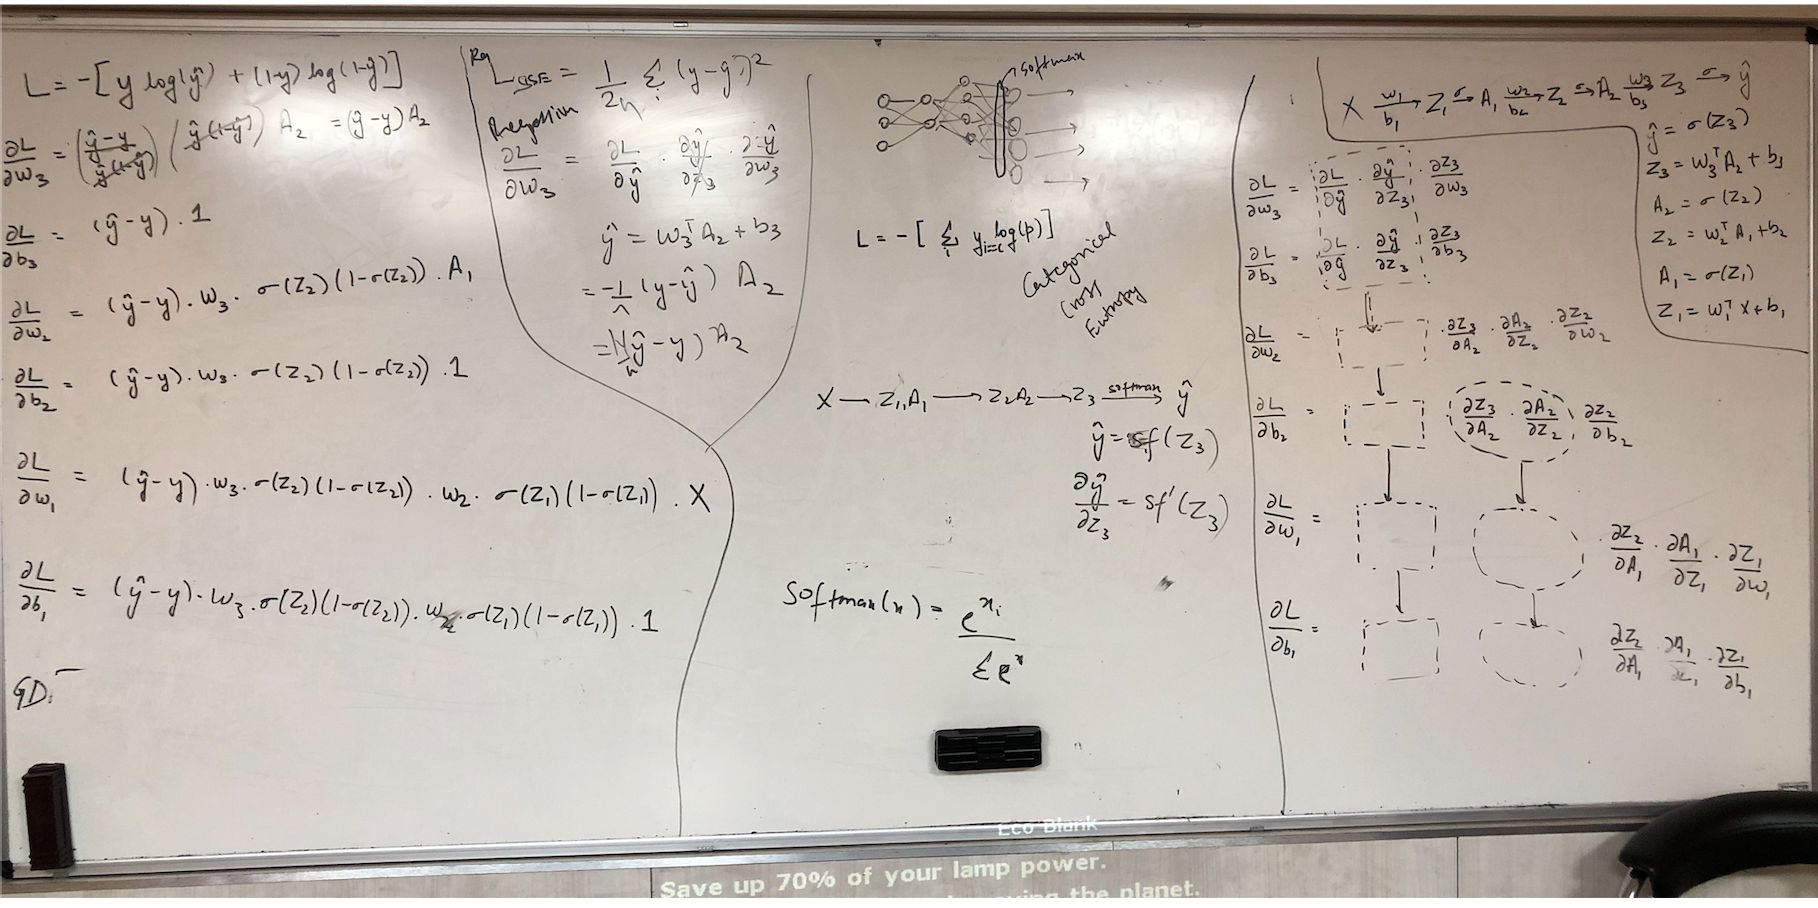 L = -[y log(ŷ) + (1-y) log(1-ŷ)]
∂L/∂w₃ = (ŷ-y / ŷ(1-ŷ)) (ŷ(1-ŷ)) A₂ = (ŷ-y) A₂
∂L/∂b₃ = (ŷ-y) . 1
∂L/∂w₂ = (ŷ-y) . w₃ . σ(Z₂)(1-σ(Z₂)) . A₁
∂L/∂b₂ = (ŷ-y) . w₃ . σ(Z₂)(1-σ(Z₂)) . 1
∂L/∂w₁ = (ŷ-y) . w₃ . σ(Z₂)(1-σ(Z₂)) . w₂ . σ(Z₁)(1-σ(Z₁)) . X
∂L/∂b₁ = (ŷ-y) . w₃ . σ(Z₂)(1-σ(Z₂)) . w₂ . σ(Z₁)(1-σ(Z₁)) . 1
GD.
Reg
L = 1/2n Σ (y-ŷ)²
∂L/∂w₃ = ∂L/∂ŷ . ∂ŷ/∂z₃ . ∂ŷ/∂w₃
ŷ = w₃ᵀA₂ + b₃
= -1/n (y-ŷ) A₂
= 1/n (ŷ-y) A₂
softmax
L = -[Σ yᵢ₌c log(p)]
Categorical
Cross
Entropy
X → Z₁,A₁ → Z₂A₂ → Z₃ softmax→ ŷ
ŷ = sf(Z₃)
∂ŷ/∂Z₃ = sf'(Z₃)
Softmax(x) = e^xᵢ / Σe^x
X w₁/b₁→ Z₁ σ→ A₁ w₂/b₂→ Z₂ σ→ A₂ w₃/b₃→ Z₃ σ→ ŷ
ŷ = σ(Z₃)
Z₃ = w₃ᵀA₂ + b₃
A₂ = σ(Z₂)
Z₂ = w₂ᵀA₁ + b₂
A₁ = σ(Z₁)
Z₁ = w₁ᵀX + b₁
∂L/∂w₃ = ∂L/∂ŷ . ∂ŷ/∂Z₃ . ∂Z₃/∂w₃
∂L/∂b₃ = ∂L/∂ŷ . ∂ŷ/∂Z₃ . ∂Z₃/∂b₃
∂L/∂w₂ = . ∂Z₃/∂A₂ . ∂A₂/∂Z₂ . ∂Z₂/∂w₂
∂L/∂b₂ = ∂Z₃/∂A₂ . ∂A₂/∂Z₂ . ∂Z₂/∂b₂
∂L/∂w₁ = ∂Z₂/∂A₁ . ∂A₁/∂Z₁ . ∂Z₁/∂w₁
∂L/∂b₁ = ∂Z₂/∂A₁ . ∂A₁/∂Z₁ . ∂Z₁/∂b₁
Eco Blank
Save up 70% of your lamp power.
the planet.